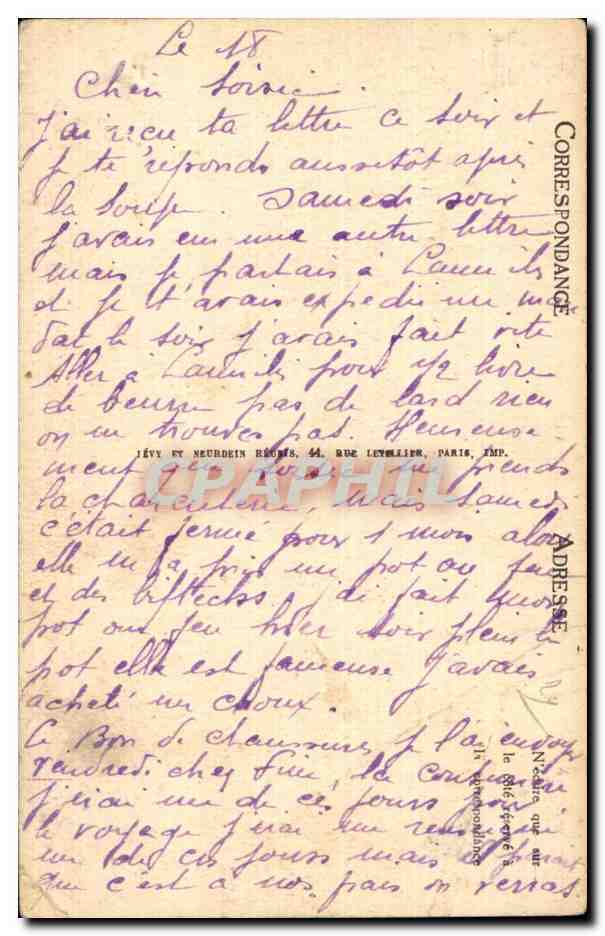 Le 18
J'ai reçu ta lettre ce soir et
je te réponds aussitôt après
la soupe. Samedi soir
j'avais eu une autre lettre
mais je partais à
et je t'avais expédié un man
dat le soir j'avais fait vite
Aller à pour 1/2 livre
de beurre pas de lard rien
on ne trouve pas. Heureuse
ment que prends
la charcuterie, mais samedi
c'était fermé pour 1 mois alors
elle m'a pris un pot au feu
et des biftecks j'ai fait mon
pot au feu hier soir plein le
pot elle est fameuse j'avais
acheté un choux.
Ce Bon de chaussures je l'ai envoyé
vendredi chez la
j'irai un de ces jours pour
le voyage j'irai me
un de ces jours mais il parait
que c'est à nos frais on verras
CORRESPONDANCE
ADRESSE
N'écrire que sur
le côté réservé à
la correspondance
LÉVY ET NEURDEIN RÉUNIS, 44, RUE LETELLIER, PARIS, IMP.
CPAPHIL